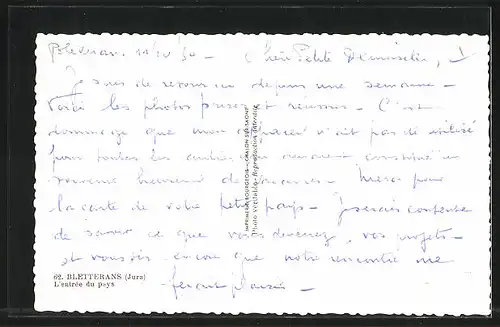 Chère Petite Demoiselle,
Je suis de retour ici depuis une semaine -
Voici les photos prises et réussies - C'est
dommage que mon appareil n'ait pas été utilisé
pour toutes les
souvenir de vacances - Merci pour
la carte de votre petit pays - Je serais contente
de savoir ce que vous devenez, vos projets -
et vous dis encore que notre rencontre me
ferait plaisir -
IMPRIMERIE BOURGEOIS - CHALON-SUR-SAONE
Photo véritable - Reproduction interdite
62. BLETTERANS (Jura)
L'entrée du pays